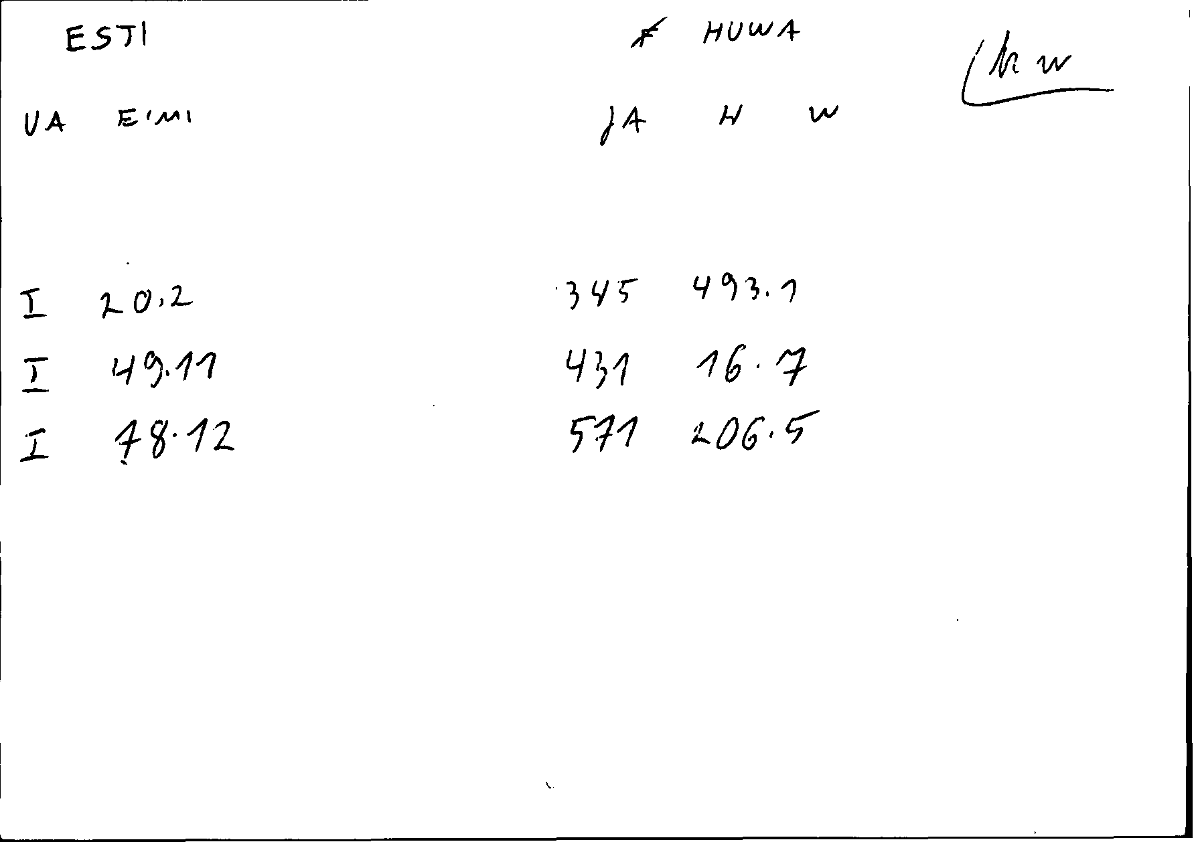 ESTI HUWA hw
VA EIMI JA H W
I 20.2 345 493.1
I 49.11 431 16.7
I 78.12 571 206.5